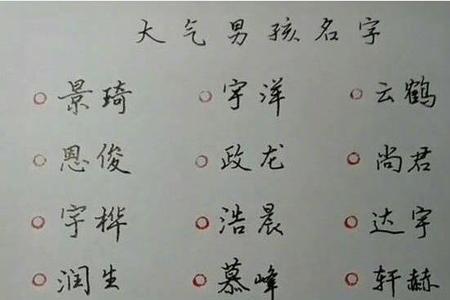 大气男孩名字
景琦 宇洋 云鹤
恩俊 政龙 尚君
宇桦 浩晨 达宇
润生 慕峰 轩赫